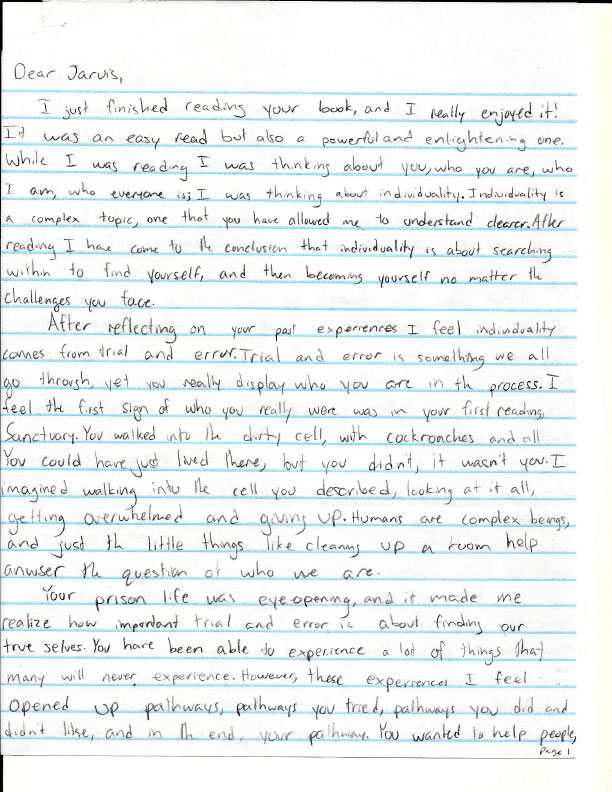 Dear Jarvis,
I just finished reading your book, and I really enjoyed it!
It was an easy read but also a powerful and enlightening one.
While I was reading I was thinking about you, who you are, who
I am, who everyone is; I was thinking about individuality. Individuality is
a complex topic, one that you have allowed me to understand clearer. After
reading I have come to the conclusion that individuality is about searching
within to find yourself, and then becoming yourself no matter the
challenges you face.
After reflecting on your past experiences I feel individuality
comes from trial and error. Trial and error is something we all
go through, yet you really display who you are in the process. I
feel the first sign of who you really were was in your first reading,
Sanctuary. You walked into the dirty cell, with cockroaches and all
You could have just lived there, but you didn't, it wasn't you. I
imagined walking into the cell you described, looking at it all,
getting overwhelmed and giving up. Humans are complex beings,
and just the little things like cleaning up a room help
anwser the question of who we are.
Your prison life was eye-opening, and it made me
realize how important trial and error is about finding our
true selves. You have been able to experience a lot of things that
many will never experience. However, these experiences I feel
opened up pathways, pathways you tried, pathways you did and
didn't like, and in the end, your pathway. You wanted to help people,
Page 1